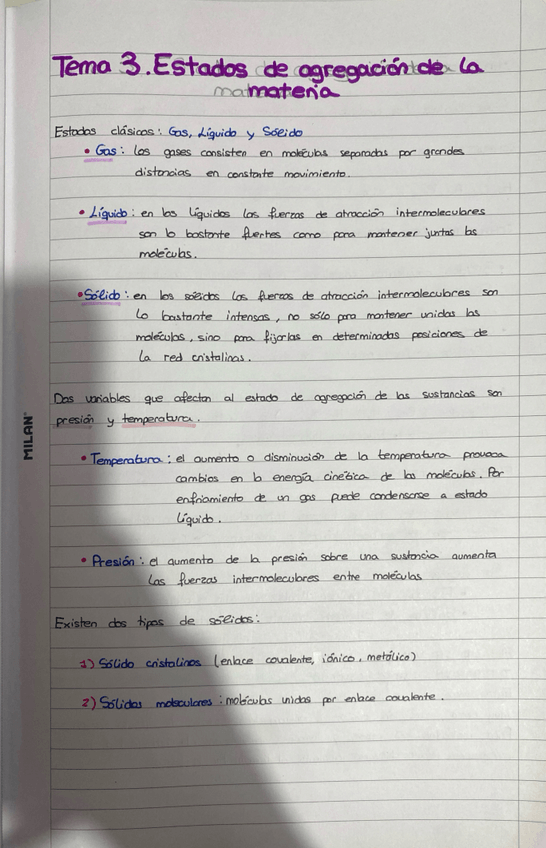 Tema 3. Estados de agregación de la
materia
Estados clásicos: Gas, Líquido y Sólido
• Gas: los gases consisten en moléculas separadas por grandes
distancias en constante movimiento.
• Líquido: en los líquidos las fuerzas de atracción intermoleculares
son lo bastante fuertes como para mantener juntas las
moléculas.
• Sólido: en los sólidos las fuerzas de atracción intermoleculares son
lo bastante intensas, no sólo para mantener unidas las
moléculas, sino para fijarlas en determinadas posiciones de
la red cristalinas.
Dos variables que afectan al estado de agregación de las sustancias son
presión y temperatura.
• Temperatura: el aumento o disminución de la temperatura provoca
cambios en la energía cinética de las moléculas. Por
enfriamiento de un gas puede condensarse a estado
líquido.
• Presión: el aumento de la presión sobre una sustancia aumenta
las fuerzas intermoleculares entre moléculas
Existen dos tipos de sólidos:
1) Sólido cristalinos (enlace covalente, iónico, metálico)
2) Sólidos moleculares: moléculas unidas por enlace covalente.
MILAN®